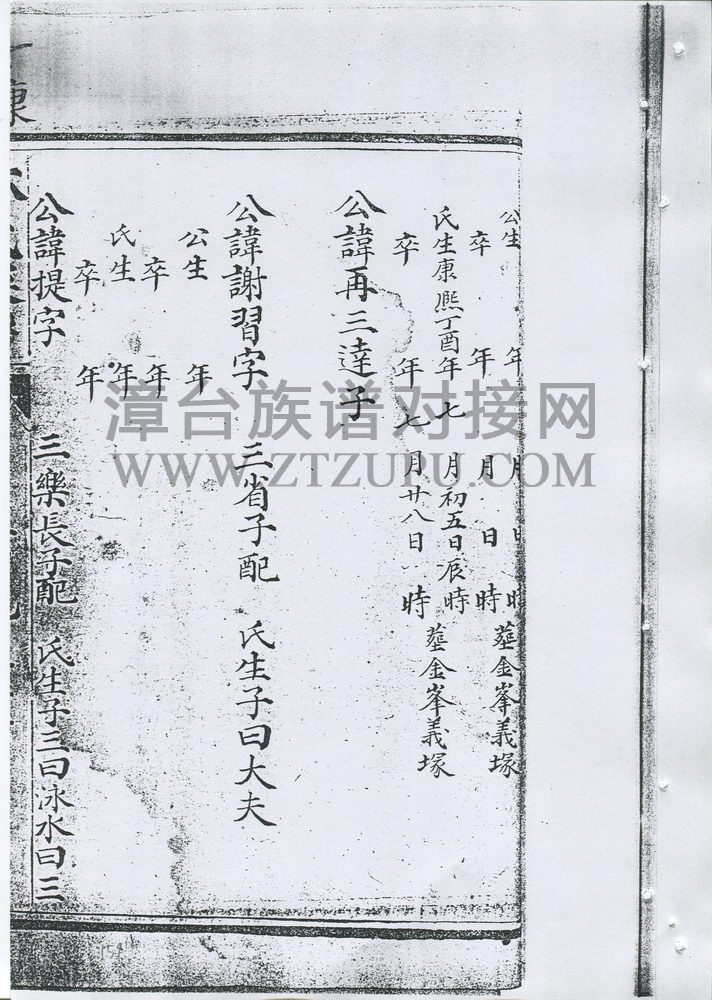 公生 年 月 日 時
卒 年 月 日 時 葬金峯義塚
氏生康熙丁酉年七月初五日辰時
卒 年七月廿八日 時 葬金峯義塚
公諱再三達子
公諱謝習字 三省子配 氏生子曰大夫
公生 年
卒 年
氏生 年
卒 年
公諱提字 三樂長子配 氏生子三曰泳水曰三
漳台族谱对接网
WWW.ZTZUPU.COM